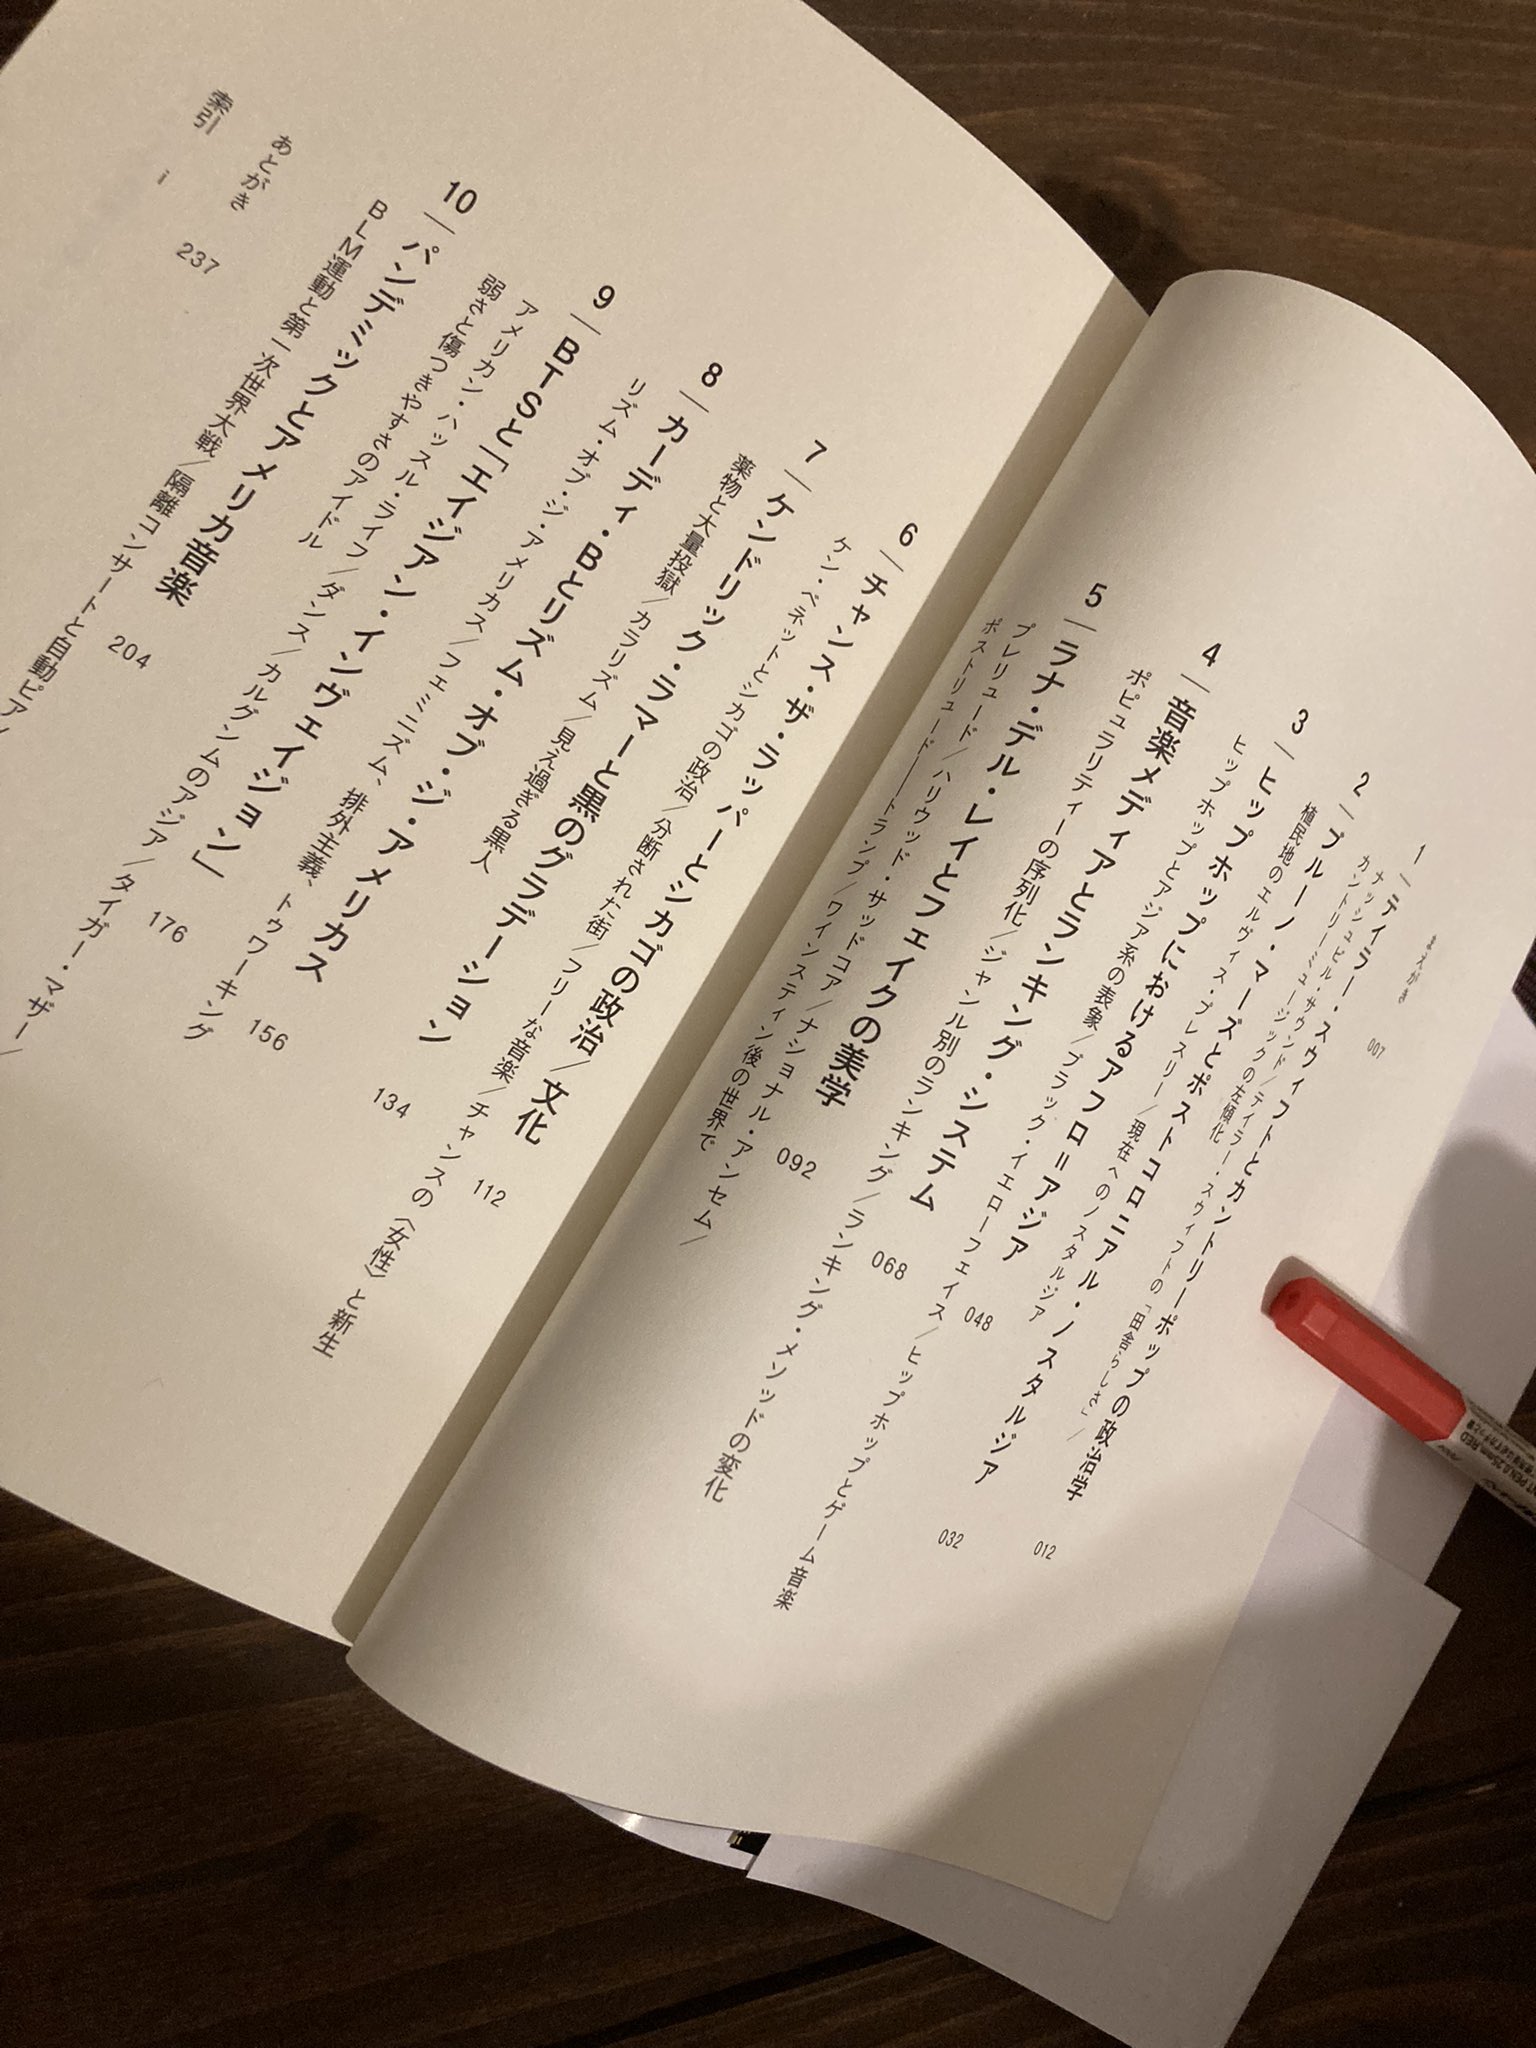 まえがき 007
1―テイラー・スウィフトとカントリーポップの政治学 012
ナッシュビル・サウンド/テイラー・スウィフトの「田舎らしさ」/
カントリーミュージックの左傾化
2―ブルーノ・マーズとポストコロニアル・ノスタルジア 032
植民地のエルヴィス・プレスリー/現在へのノスタルジア
3―ヒップホップにおけるアフロ=アジア 048
ヒップホップとアジア系の表象/ブラック・イエローフェイス/ヒップホップとゲーム音楽
4―音楽メディアとランキング・システム 068
ポピュラリティーの序列化/ジャンル別のランキング/ランキング・メソッドの変化
5―ラナ・デル・レイとフェイクの美学 092
プレリュード/ハリウッド・サッドコア/ナショナル・アンセム/
ポストリュード――トランプ/ワインスティン後の世界で
6―チャンス・ザ・ラッパーとシカゴの政治/文化 112
ケン・ベネットとシカゴの政治/分断された街/フリーな音楽/チャンスの〈女性〉と新生
7―ケンドリック・ラマーと黒のグラデーション 134
薬物と大量投獄/カラリズム/見え過ぎる黒人
8―カーディ・Bとリズム・オブ・ジ・アメリカス 156
リズム・オブ・ジ・アメリカス/フェミニズム、排外主義、トゥワーキング
9―BTSと「エイジアン・インヴェイジョン」 176
アメリカン・ハッスル・ライフ/ダンス/カルグンムのアジア/タイガー・マザー/
弱さと傷つきやすさのアイドル
10―パンデミックとアメリカ音楽 204
BLM運動と第一次世界大戦/隔離コンサートと自動ピアノ
あとがき 237
索引 i
RED